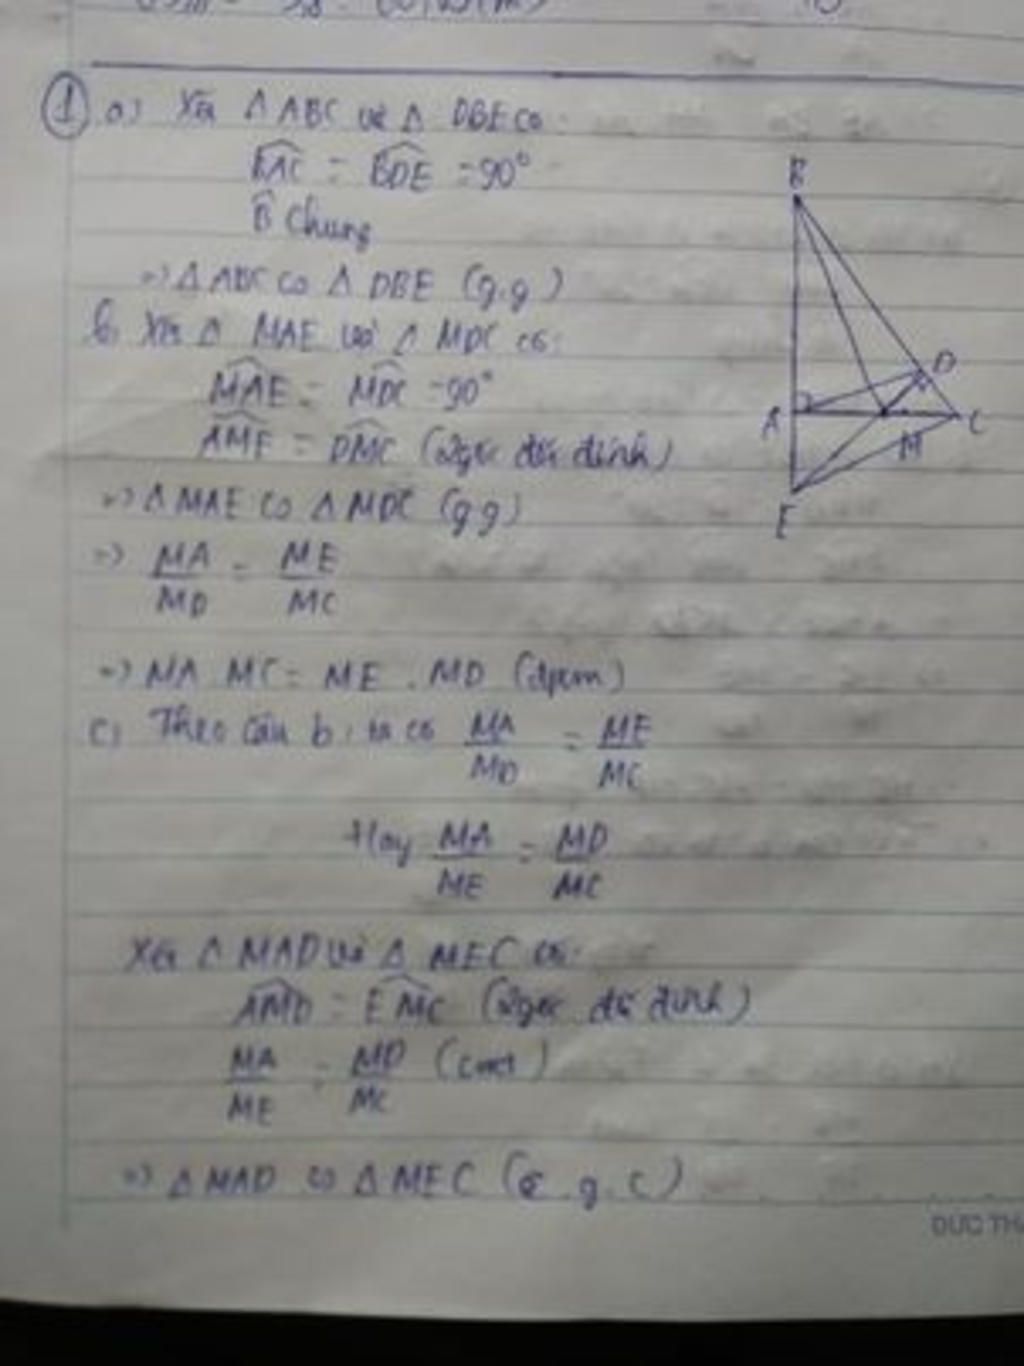 ① a) Xét Δ ABC và Δ DBE có:
BAC = BDE = 90°
B chung
=> Δ ABC ∽ Δ DBE (g.g)
b, Xét Δ MAE và Δ MDC có:
MAE = MDC = 90°
AME = DMC (2 góc đối đỉnh)
=> Δ MAE ∽ Δ MDC (g g)
=> MA/MD = ME/MC
=> MA MC = ME . MD (đpcm)
c, Theo câu b, ta có MA/MD = ME/MC
Hay MA/ME = MD/MC
Xét Δ MAD và Δ MEC có:
AMD = EMC (2 góc đối đỉnh)
MA/ME = MD/MC (cmt)
=> Δ MAD ∽ Δ MEC (c . g . c)
B
D
A
C
M
E